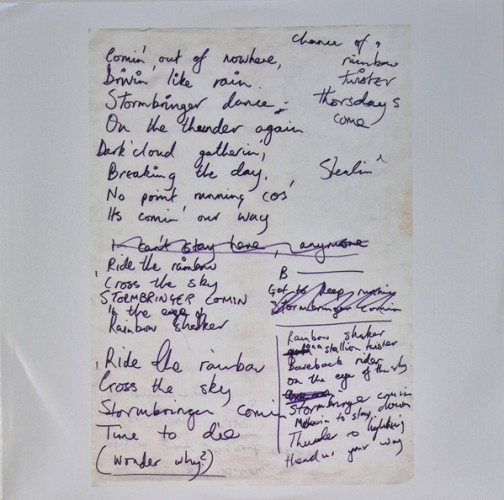 Comin' out of nowhere,
Drivin' like rain.
Stormbringer dance
On the thunder again
Dark cloud gatherin',
Breaking the day,
No point running cos'
Its comin' our way
I can't stay here, anymore
Ride the rainbow
Cross the sky
STORMBRINGER COMIN
In the eye of
Rainbow shaker
Ride the rainbow
Cross the sky
Stormbringer comin
Time to die
(Wonder why?)
Chance of a
rainbow
twister
Thorsdays
come
Stealin'
B
Got to keep running
Stormbringer comin
Rainbow shaker
on a stallion twister
Bareback rider
on the eye of the sky
Stormbringer comin
down
Nothin to stay
Thunder lightning
Headin your way